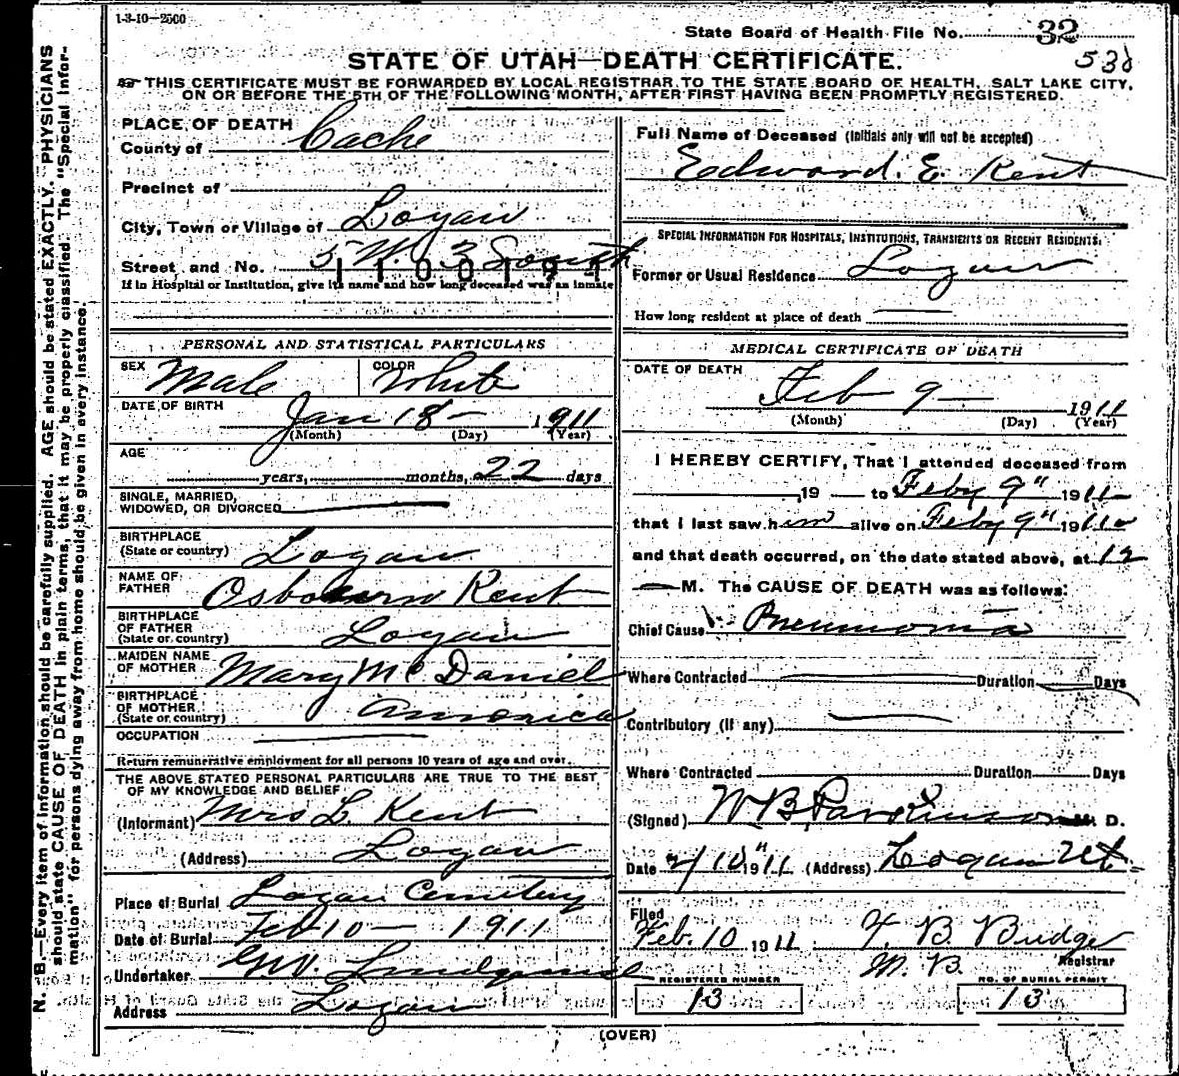 1-3-10—2500
State Board of Health File No. 32
STATE OF UTAH—DEATH CERTIFICATE.
THIS CERTIFICATE MUST BE FORWARDED BY LOCAL REGISTRAR TO THE STATE BOARD OF HEALTH, SALT LAKE CITY,
ON OR BEFORE THE 5TH OF THE FOLLOWING MONTH, AFTER FIRST HAVING BEEN PROMPTLY REGISTERED.
PLACE OF DEATH
County of Cache
Precinct of
City, Town or Village of Logan
Street and No. 5 W. 3 South
If in Hospital or Institution, give its name and how long deceased was an inmate
PERSONAL AND STATISTICAL PARTICULARS
SEX Male COLOR White
DATE OF BIRTH Jan 18— 1911
(Month) (Day) (Year)
AGE
years, months, 22 days
SINGLE, MARRIED,
WIDOWED, OR DIVORCED
BIRTHPLACE
(State or country) Logan
NAME OF
FATHER Osborn Kent
BIRTHPLACE
OF FATHER
(State or country) Logan
MAIDEN NAME
OF MOTHER Mary McDaniel
BIRTHPLACE
OF MOTHER
(State or country) America
OCCUPATION
Return remunerative employment for all persons 10 years of age and over.
THE ABOVE STATED PERSONAL PARTICULARS ARE TRUE TO THE BEST
OF MY KNOWLEDGE AND BELIEF
(Informant) Mrs L. Kent
(Address) Logan
Place of Burial Logan Cemetery
Date of Burial Feb 10— 1911
Undertaker
Address Logan
Full Name of Deceased (Initials only will not be accepted)
Edward. E. Kent
SPECIAL INFORMATION FOR HOSPITALS, INSTITUTIONS, TRANSIENTS OR RECENT RESIDENTS.
Former or Usual Residence Logan
How long resident at place of death
MEDICAL CERTIFICATE OF DEATH
DATE OF DEATH
Feb 9— 1911
(Month) (Day) (Year)
I HEREBY CERTIFY, That I attended deceased from
, 19 to Feby 9" 1911
that I last saw him alive on Feby 9" 1911
and that death occurred, on the date stated above, at 12
— M. The CAUSE OF DEATH was as follows:
Chief Cause Pneumonia
Where Contracted Duration Days
Contributory (if any)
Where Contracted Duration Days
(Signed) W B Parkinson M. D.
Date 2/10" 1911 (Address) Logan Ut
Filed
Feb. 10 1911
Registrar
REGISTERED NUMBER
13
NO. OF BURIAL PERMIT
13
(OVER)
N. B.—Every item of information should be carefully supplied. AGE should be stated EXACTLY. PHYSICIANS
should state CAUSE OF DEATH in plain terms, that it may be properly classified. The "Special Infor-
mation" for persons dying away from home should be given in every instance.